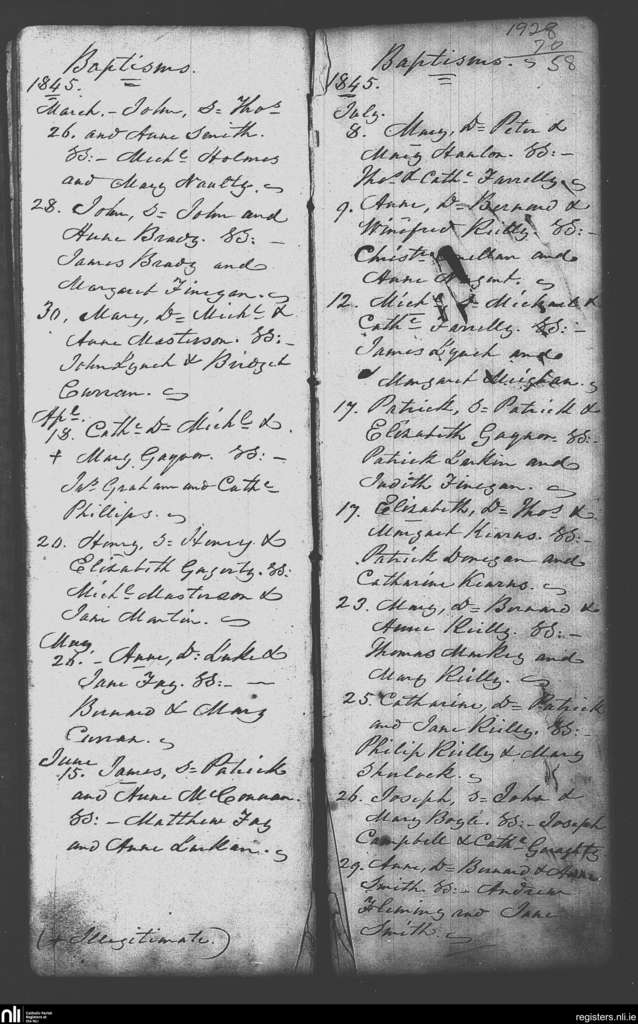 Baptisms.
1845.
March. - John, S= Thos
26. and Anne Smith.
SS:- Michl Holmes
and Mary Naulty.
28. John, S= John and
Anne Brady. SS: -
James Brady and
Margaret Finegan.
30, Mary, D= Michl &
Anne Masterson. SS:-
John Lynch & Bridget
Curran.
Apl.
18. Cathe D= Michl &
+ Mary Gaynor. SS: -
Jas Graham and Cathe
Phillips.
20. Henry, S= Henry &
Elizabeth Gagerty. SS:
Michl Masterson &
Jane Martin.
May
26. - Anne, D: Luke &
Jane Fay. SS:- -
Bernard & Mary
Curran.
June
15. James, S= Patrick
and Anne McConnan.
SS: - Matthew Fay
and Anne Larkan.
(+ Illegitimate.)
1928
70
58
Baptisms.
1845.
July.
8. Mary, D= Peter &
Mary Hanlon. SS:-
Thos & Cathe Farrelly.
9. Anne, D= Bernard &
Winefred Reilly. SS:-
Christr and
Anne
12. Michl S= Michael &
Cathe Farrelly. SS:-
James Lynch and
Margaret Meighan.
17. Patrick, S= Patrick &
Elizabeth Gaynor. SS:-
Patrick Larkin and
Judith Finegan.
17. Elizabeth, D= Thos &
Margaret Kearns. SS:-
Patrick Donegan and
Catharine Kearns.
23. Mary, D= Bernard &
Anne Reilly. SS:-
Thomas Markey and
Mary Reilly.
25. Catharine, D= Patrick
and Jane Reilly. SS:-
Philip Reilly & Mary
Sherlock.
26. Joseph, S= John &
Mary Boyle. SS:- Joseph
Campbell & Cathe Geraghty.
29. Anne, D= Bernard & Anne
Smith SS:- Andrew
Fleming and Jane
Smith.
nli
Catholic Parish
Registers at
the NLI
registers.nli.ie